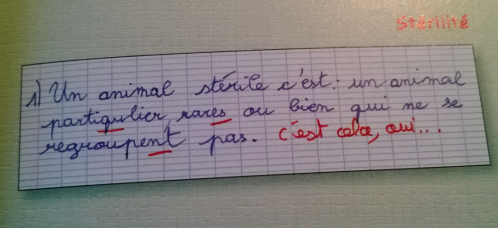 Stérilité
1) Un animal stérile c'est : un animal
partigulier, rares ou bien qui ne se
regroupent pas. C'est cela, oui...